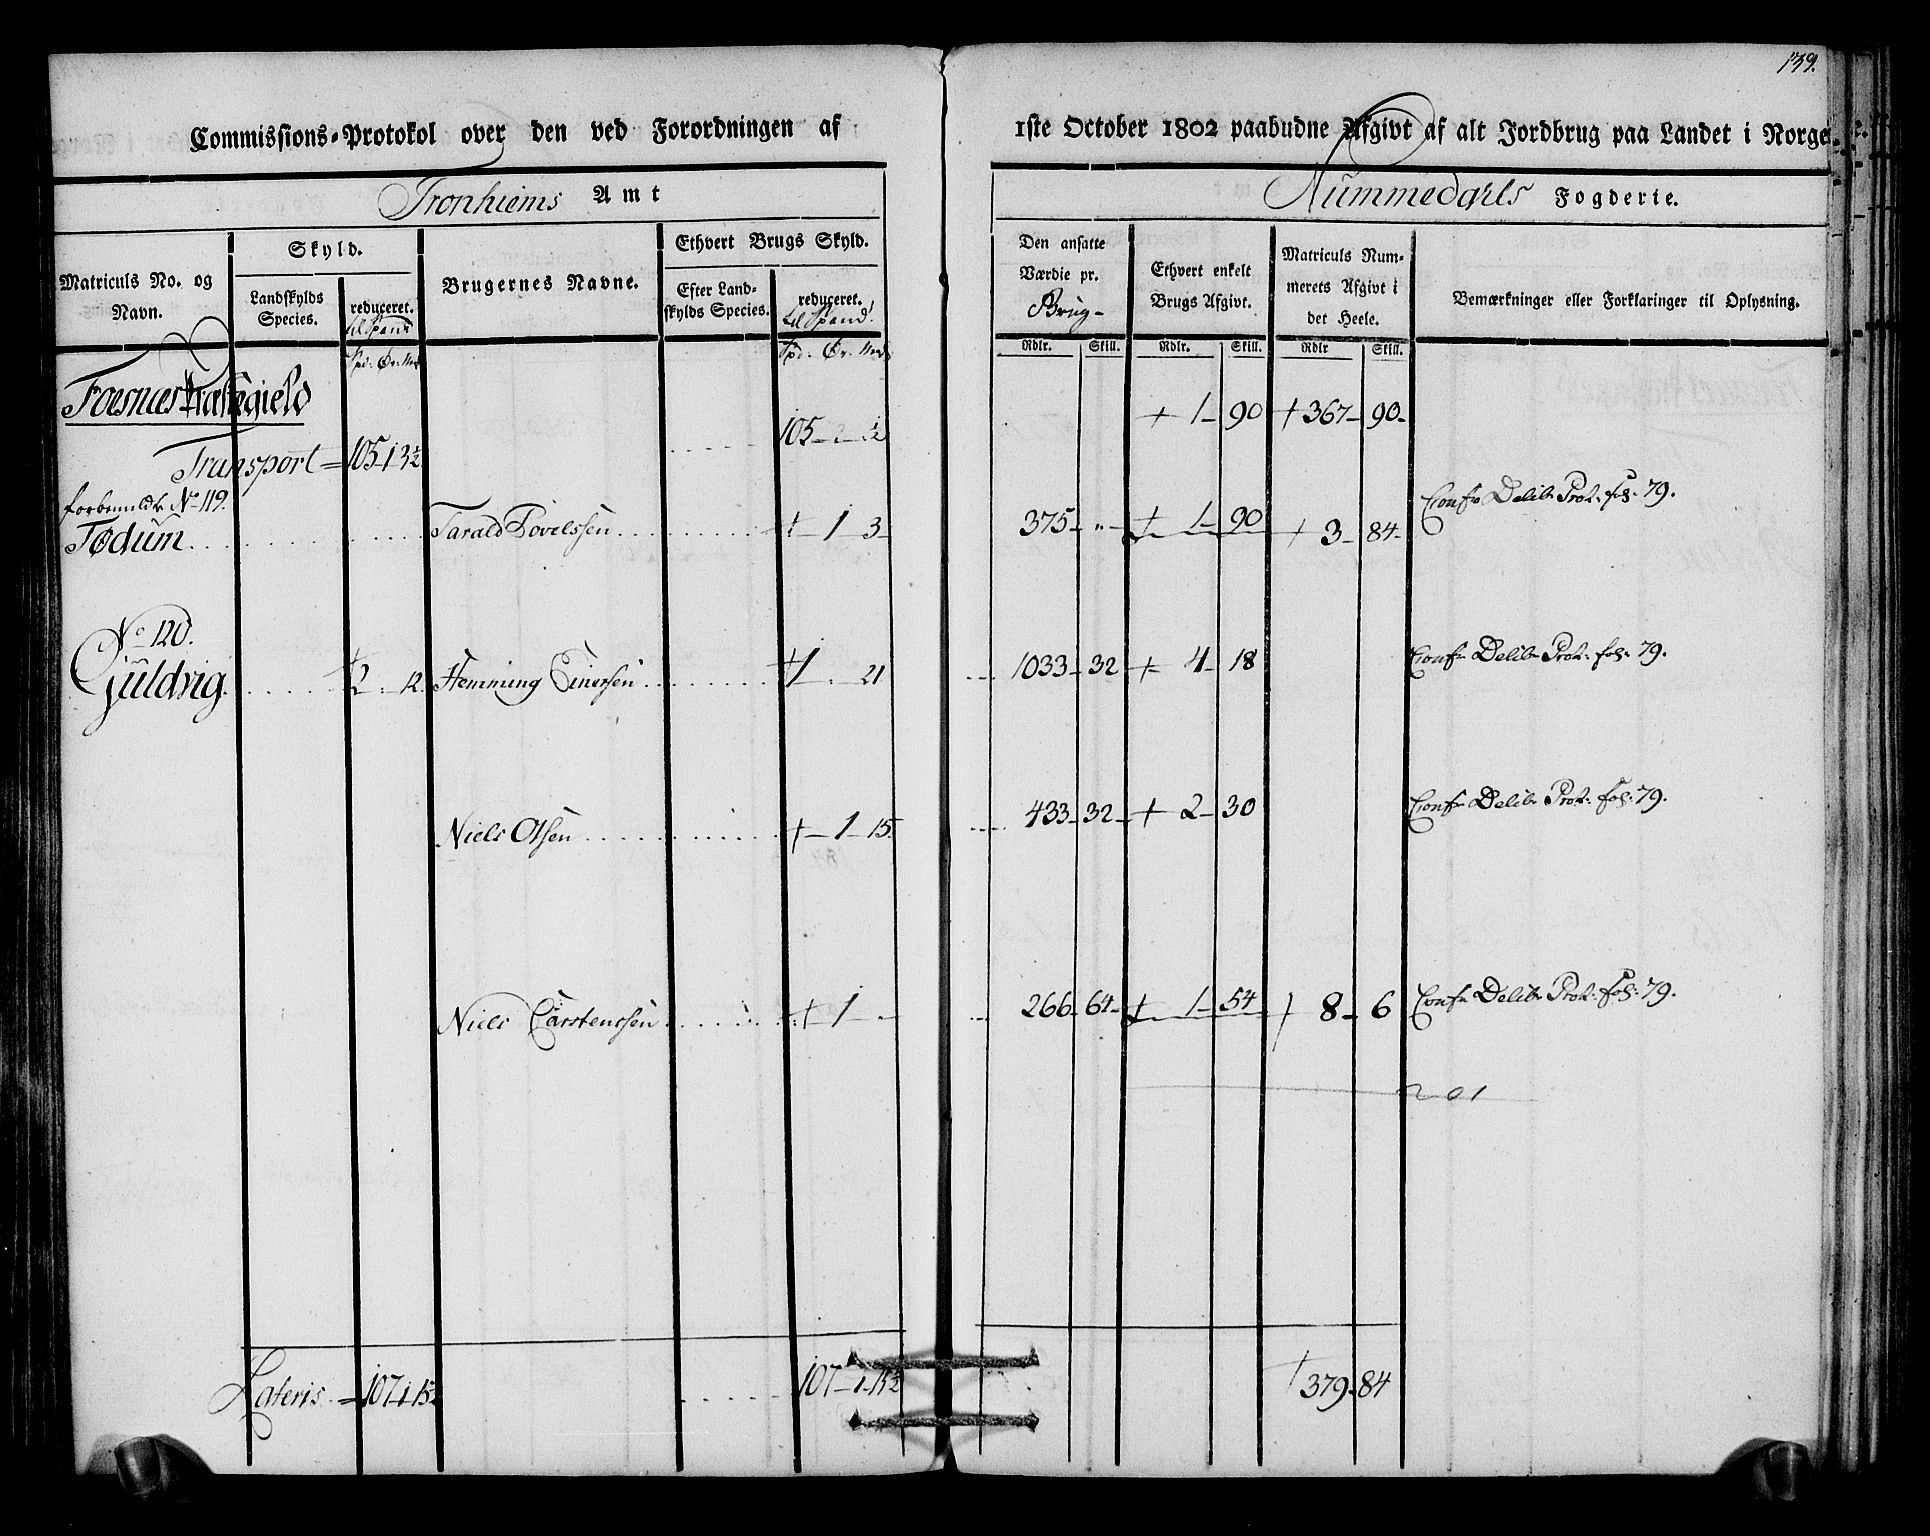 139.
Commissions-Protokol over den ved Forordningen af 1ste October 1802 paabudne Afgivt af alt Jordbrug paa Landet i Norge.
Tronhiems Amt
Nummedahls Fogderie.
Matriculs No. og Navn.
Skyld.
Landskylds Species.
reduceret.
til Spand
Brugernes Navne.
Ethvert Brugs Skyld.
Efter Landskylds Species.
reduceret.
til Spand.
Den ansatte Værdie pr.
Brug-
Ethvert enkelt Brugs Afgivt.
Matriculs Nummerets Afgivt i det Heele.
Bemærkninger eller Forklaringer til Oplysning.
Spd. Ør. Mrk
Spd. Ør. Mrk
Rdlr. Skill. Rdlr. Skill. Rdlr Skill.
Foesnes Præstegield
+ 1- 90 + 367- 90-
Transport = 105-1-3½
forbemeldte No 119.
Tødum Tarald Povelssen + - 1 - 3 - 375- „ - + 1- 90 + 3- 84- Confr Delibr Prot: fol: 79.
No 120.
Guldvig 2 - 12 Hemming Einersen +1 - 21 1033- 32 + 4- 18 Confr Delibr Prot: fol: 79.
Niels Olsen + - 1 - 15. 433- 32- + 2- 30 Confr Delibr Prot: fol: 79.
Niels Carstenssen + 1 - - 266- 64- + 1- 54 + 8- 6 Confr Delibr Prot: fol: 79.
201
Lateris = 107-1-15½ 107-1-15½ + 379-84